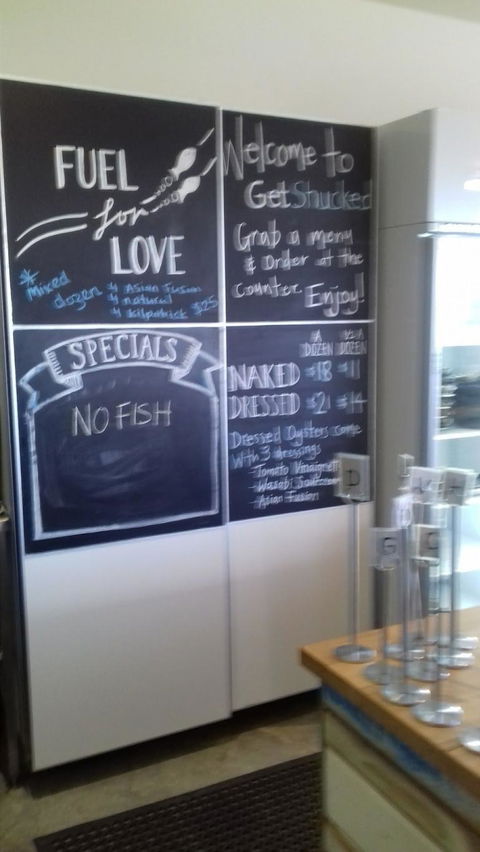 FUEL
for
LOVE
* Mixed
dozen
4 Asian Fusion
4 natural
4 Kilpatrick $25
Welcome to
Get Shucked
Grab a menu
& Order at the
counter. Enjoy!
SPECIALS
NO FISH
A DOZEN 1/2 A DOZEN
NAKED $18 $11
DRESSED $21 $14
Dressed Oysters come
With 3 dressings
- Tomato Vinaigrette
- Wasabi
- Asian Fusion
D
G